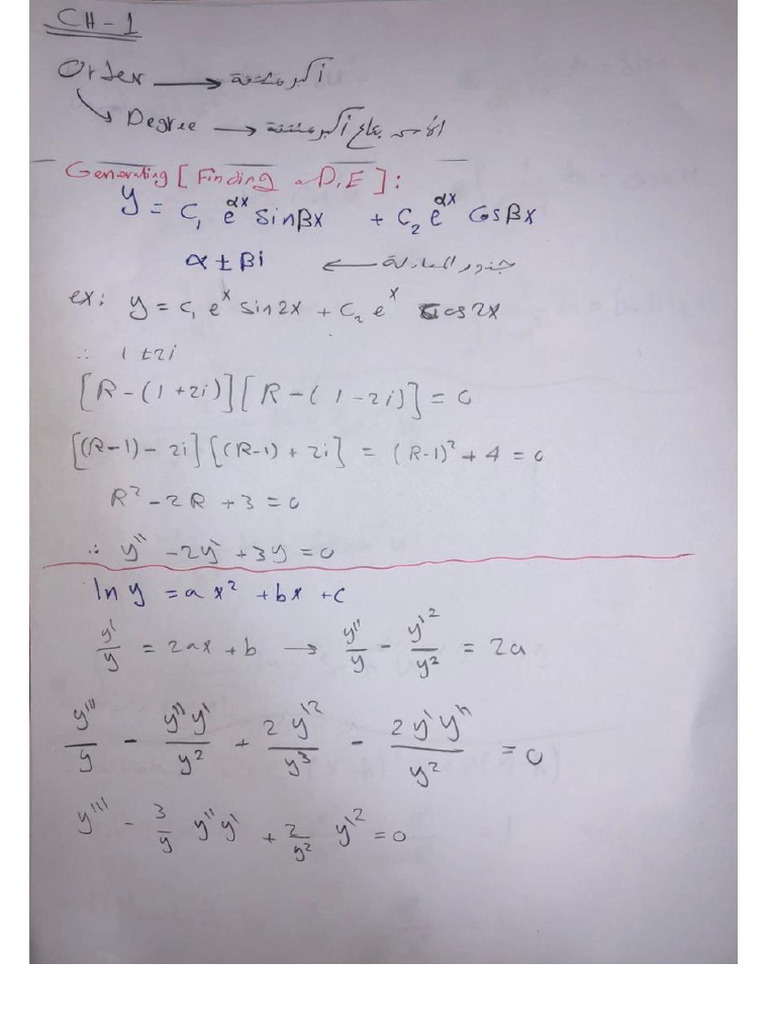 CH-1
Order → أكبر مشتقة
Degree → الأس بتاع أكبر مشتقة
Generating [Finding a D.E]:
y = c₁ e^αx sinβx + c₂ e^αx cosβx
α ± βi ← جذور المعادلة
ex: y = c₁ e^x sin2x + c₂ e^x cos2x
∴ 1 ±2i
[R-(1+2i)][R-(1-2i)] = 0
[(R-1)-2i][(R-1)+2i] = (R-1)² + 4 = 0
R² - 2R + 3 = 0
∴ y'' - 2y' + 3y = 0
ln y = ax² + bx + c
y'/y = 2ax + b → y''/y - y'²/y² = 2a
y'''/y - y''y'/y² + 2y'²/y³ - 2y'y''/y² = 0
y''' - 3/y y''y' + 2/y² y'² = 0